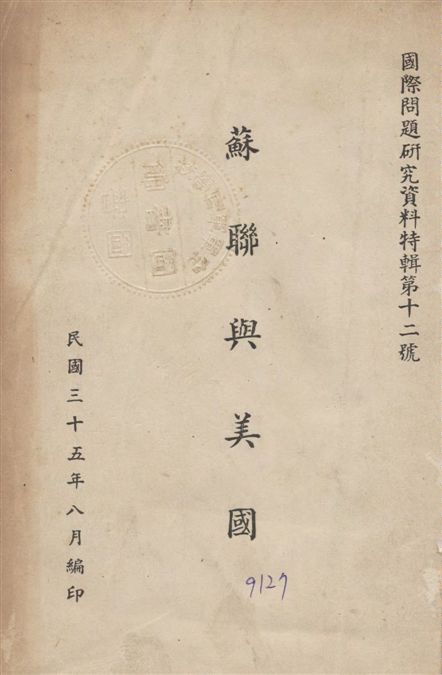 國際問題研究資料特輯第十二號
蘇聯與美國
民國三十五年八月編印
9127